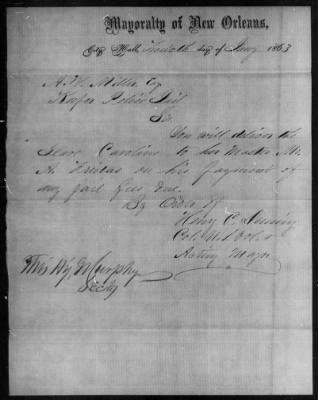 Mayoralty of New Orleans,
City Hall, day of Jany 1863
A. W. Miller, Esq
Keeper Police Jail
Sir.
You will deliver the
Slave Caroline to her Master Mr.
on his payment of
any jail fees due.
By Order of
Henry C. Deming
Col. U.S. Vols &
Acting Mayor
Murphy
Secty